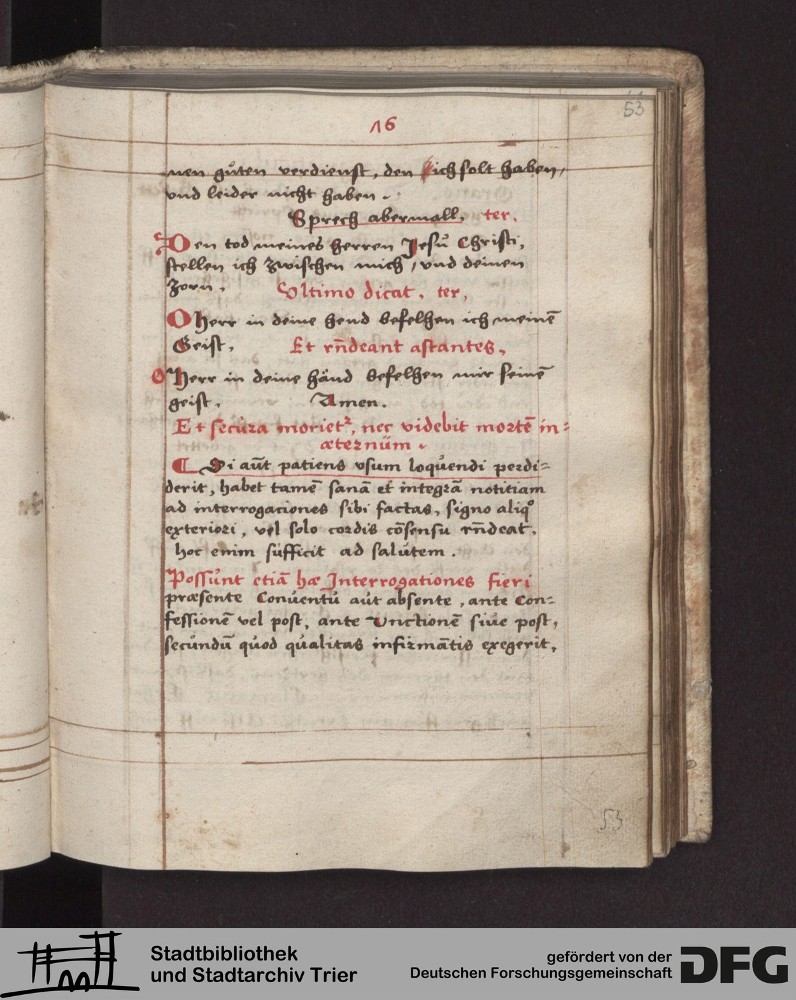 53
16
nen gůten verdienst, den ich solt haben,
vnd leider nicht haben.
Sprech abermall, ter.
Den tod meines herren Jesu Christi,
stellen ich zwischen mich, vnd deinen
zorn. Vltimo dicat, ter,
O herr in deine hend befelhen ich meinē
Geist. Et rñdeant astantes,
O Herr in deine händ befelhen mir seinē
geist. Amen.
Et secura morietr, nec videbit mortē in=
æternum.
Si aūt patiens vsum loquendi perdi=
derit, habet tamē sanā et integrā notitiam
ad interrogaciones sibi factas, signo aliqo
exteriori, vel solo cordis cōsensu rñdeat.
hoc enim sufficit ad salutem.
Possunt etiā hæ Interrogationes fieri
præsente Conuentu aut absente, ante Con=
fessionē vel post, ante Vnctionē siue post,
secundū quod qualitas infirmātis exegerit,
53
Stadtbibliothek
und Stadtarchiv Trier
gefördert von der
Deutschen Forschungsgemeinschaft
DFG